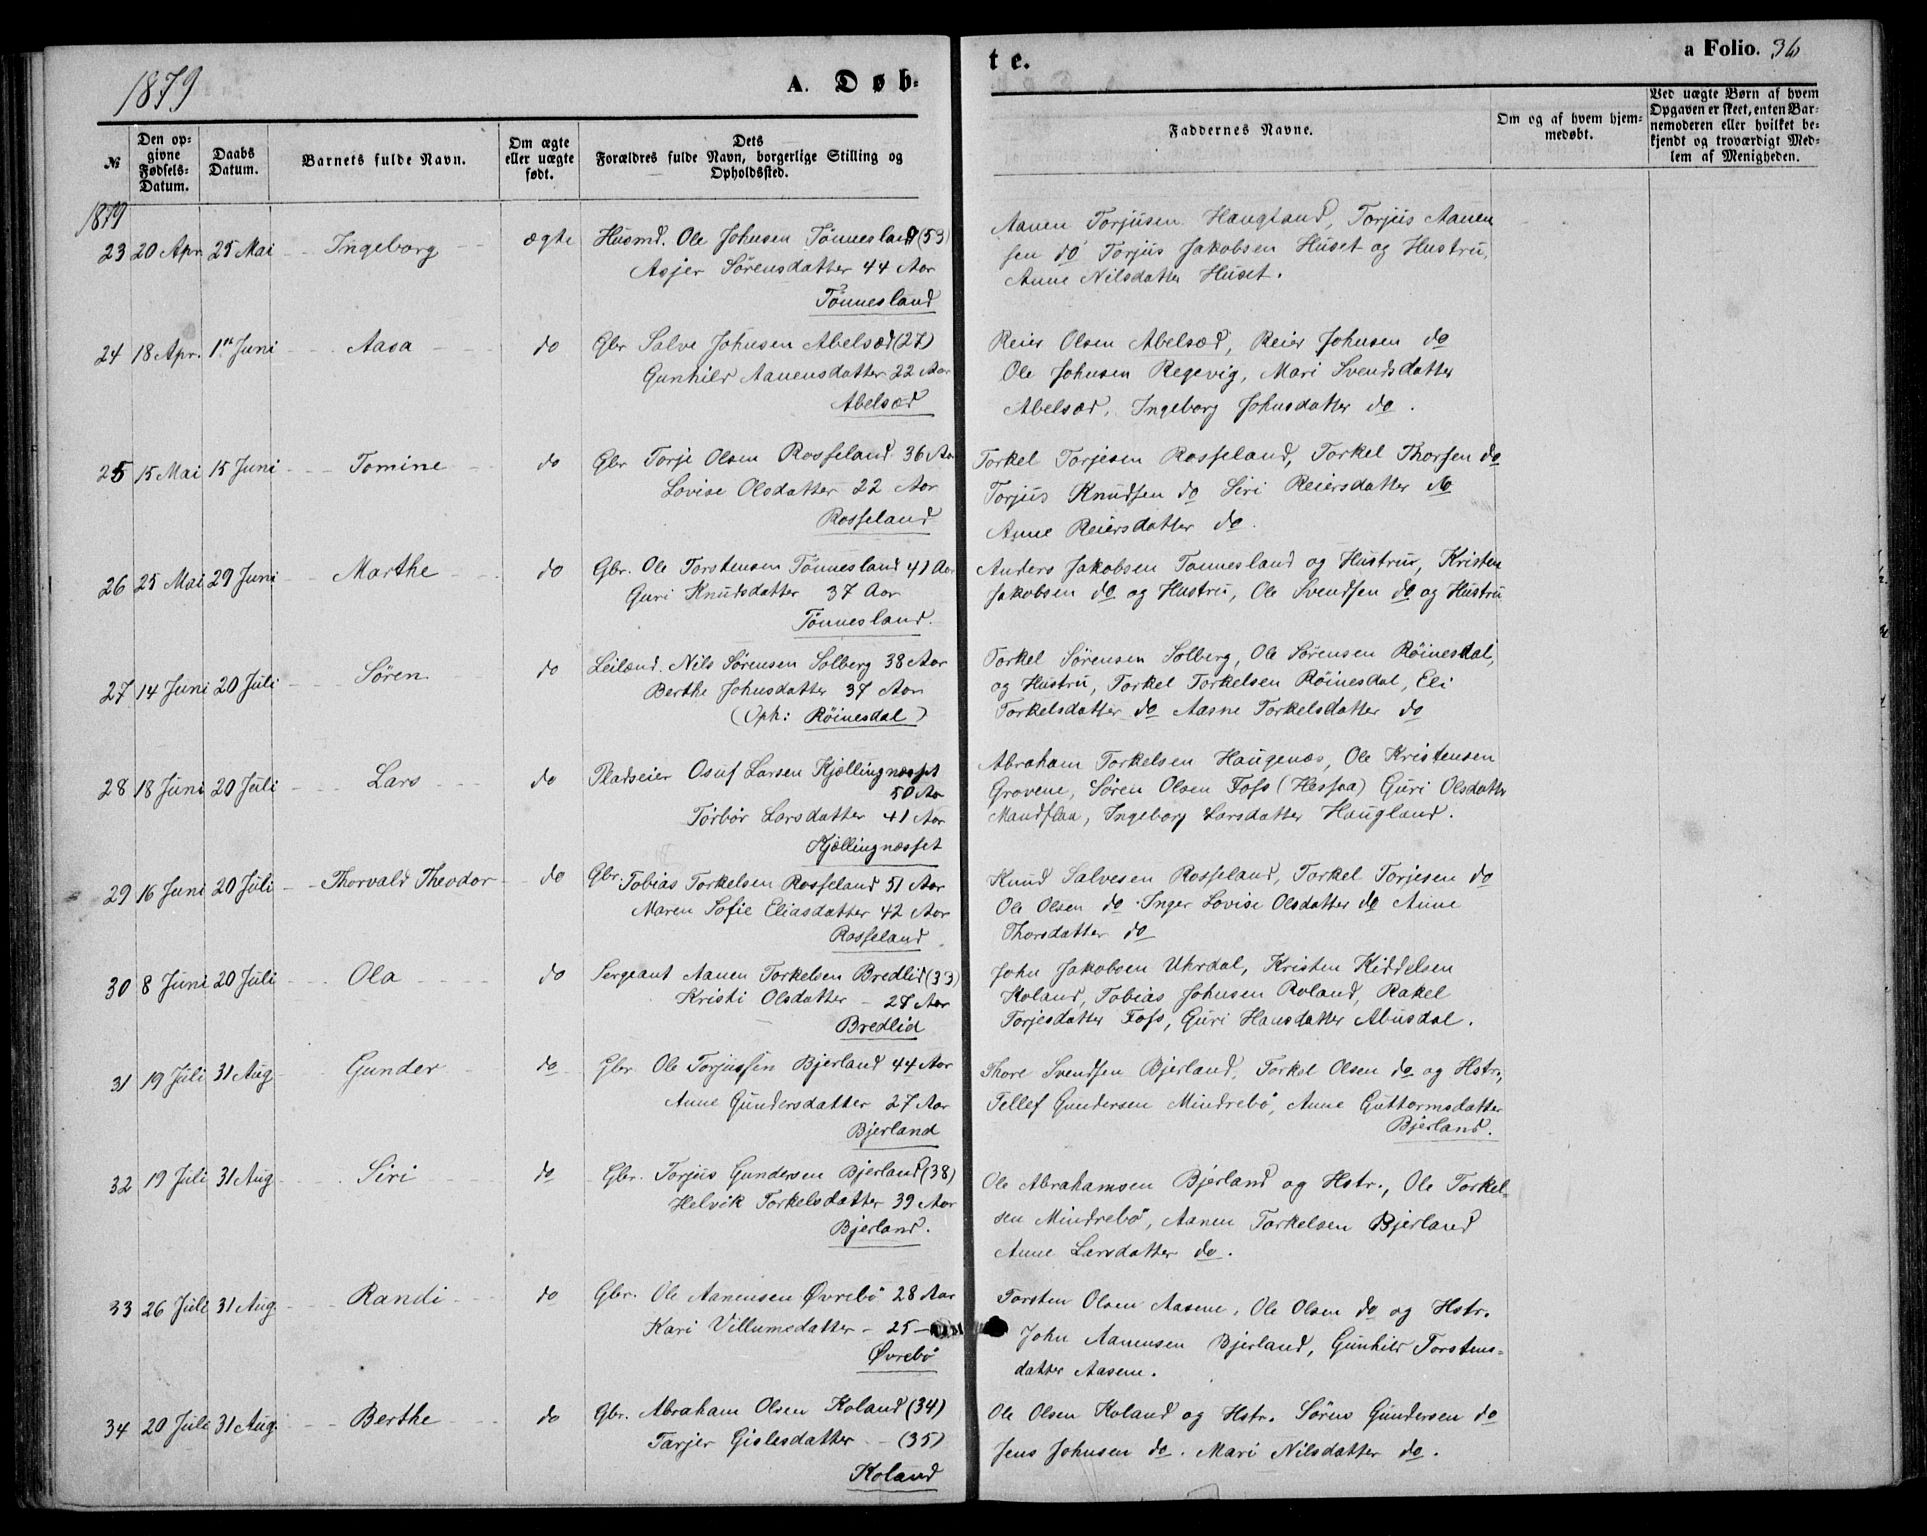 1879
A. Døb-
te.
a Folio. 36
№
Den opgivne Fødsels-Datum.
Daabs Datum.
Barnets fulde Navn.
Om ægte eller uægte født.
Dets Forældres fulde Navn, borgerlige Stilling og Opholdssted.
Faddernes Navne.
Om og af hvem hjemmedøbt.
Ved uægte Børn af hvem Opgaven er skeet, enten Barnemoderen eller hvilket bekjendt og troværdigt Medlem af Menigheden.
1879
23 20 Apr 25 Mai Ingeborg ægte Husmd. Ole Johnsen Tönnesland (53)
Asjer Sörensdatter 44 Aar
Tönnesland
Aanen Torjusen Haugland, Torjus Aanen
sen do Torjus Jakobsen Huset og Hustru,
Anne Nilsdatter Huset.
24 18 Apr. 1ste Juni Aasa do Gbr Salve Johnsen Abelsæd (27)
Gunhild Aanensdatter 22 Aar
Abelsæd
Reier Olsen Abelsæd, Reier Johnsen do
Ole Johnsen Regevig, Mari Svendsdatter
Abelsæd, Ingeborg Johnsdatter do.
25 15 Mai 15 Juni Tomine do Gbr Torje Olsen Rosseland 36 Aar
Lovise Olsdatter 22 Aar
Rosseland
Torkel Torjesen Rosseland, Torkel Thorsen do
Torjus Knudsen do Siri Reiersdatter do
Anne Reiersdatter do.
26 25 Mai 29 Juni Marthe do Gbr. Ole Torstensen Tönnesland 41 Aar
Guri Knudsdatter 37 Aar
Tönnesland.
Anders Jakobsen Tönnesland og Hustrur, Kristen
Jakobsen do og Hustru, Ole Svendsen do og Hustru
27 14 Juni 20 Juli Sören do Leilænd. Nils Sörensen Solberg 38 Aar
Berthe Johnsdatter 37 Aar
(Oph: Röinesdal)
Torkel Sörensen Solberg, Ole Sörensen Röinesdal,
og Hustru, Torkel Torkelsen Röinesdal, Eli
Torkelsdatter do Aasne Torkelsdatter do
28 18 Juni 20 Juli Lars do Pladseier Osuf Larsen Kjællingnæsset
50 Aar
Torbör Larsdatter 41 Aar
Kjællingnæsset
Abraham Torkelsen Haugenæs, Ole Kristensen
Grovene, Sören Olsen Foss (Hessaa) Guri Olsdatter
Mandflaa, Ingeborg Larsdatter Haugland.
29 16 Juni 20 Juli Thorvald Theodor do Gbr. Tobias Torkelsen Rosseland 51 Aar
Maren Sofie Eliasdatter 42 Aar
Rosseland
Knud Salvesen Rosseland, Torkel Torjesen do
Ole Olsen do. Inger Lovise Olsdatter do Anne
Thorsdatter do
30 8 Juni 20 Juli Ola do Sergeant Aanen Torkelsen Bredlid (33)
Kristi Olsdatter – 27 Aar
Bredlid
John Jakobsen Uhrdal, Kristen Kiddelsen
Koland, Tobias Johnsen Roland, Rakel
Torjesdatter Foss, Guri Hansdatter Abusdal.
31 19 Juli 31 Aug Gunder do Gbr Ole Torjussen Bjerland 44 Aar
Anne Gundersdatter 27 Aar
Bjerland
Thore Svendsen Bjerland, Torkel Olsen do og Hstr.,
Tellef Gundersen Mindrebö, Anne Guttormsdatter
Bjerland.
32 19 Juli 31 Aug Siri do Gbr. Torjus Gundersen Bjerland (38)
Helvik Torkelsdatter 39 Aar
Bjerland.
Ole Abrahamsen Bjerland og Hstr., Ole Torkel-
sen Mindrebö, Aanen Torkelsen Bjerland
Anne Larsdatter do.
33 26 Juli 31 Aug Randi do Gbr. Ole Aanensen Øvrebö 28 Aar
Kari Villumsdatter – 25 –
Øvrebö
Torsten Olsen Aasene, Ole Olsen do og Hstr.
John Aanensen Bjerland, Gunhild Torstens-
datter Aasene.
34 20 Juli 31 Aug. Berthe do Gbr. Abraham Olsen Koland (34)
Tarjer Gislesdatter – (35)
Koland
Ole Olsen Koland og Hstr. Sören Gundersen do
Jens Johnsen do. Mari Nilsdatter do.